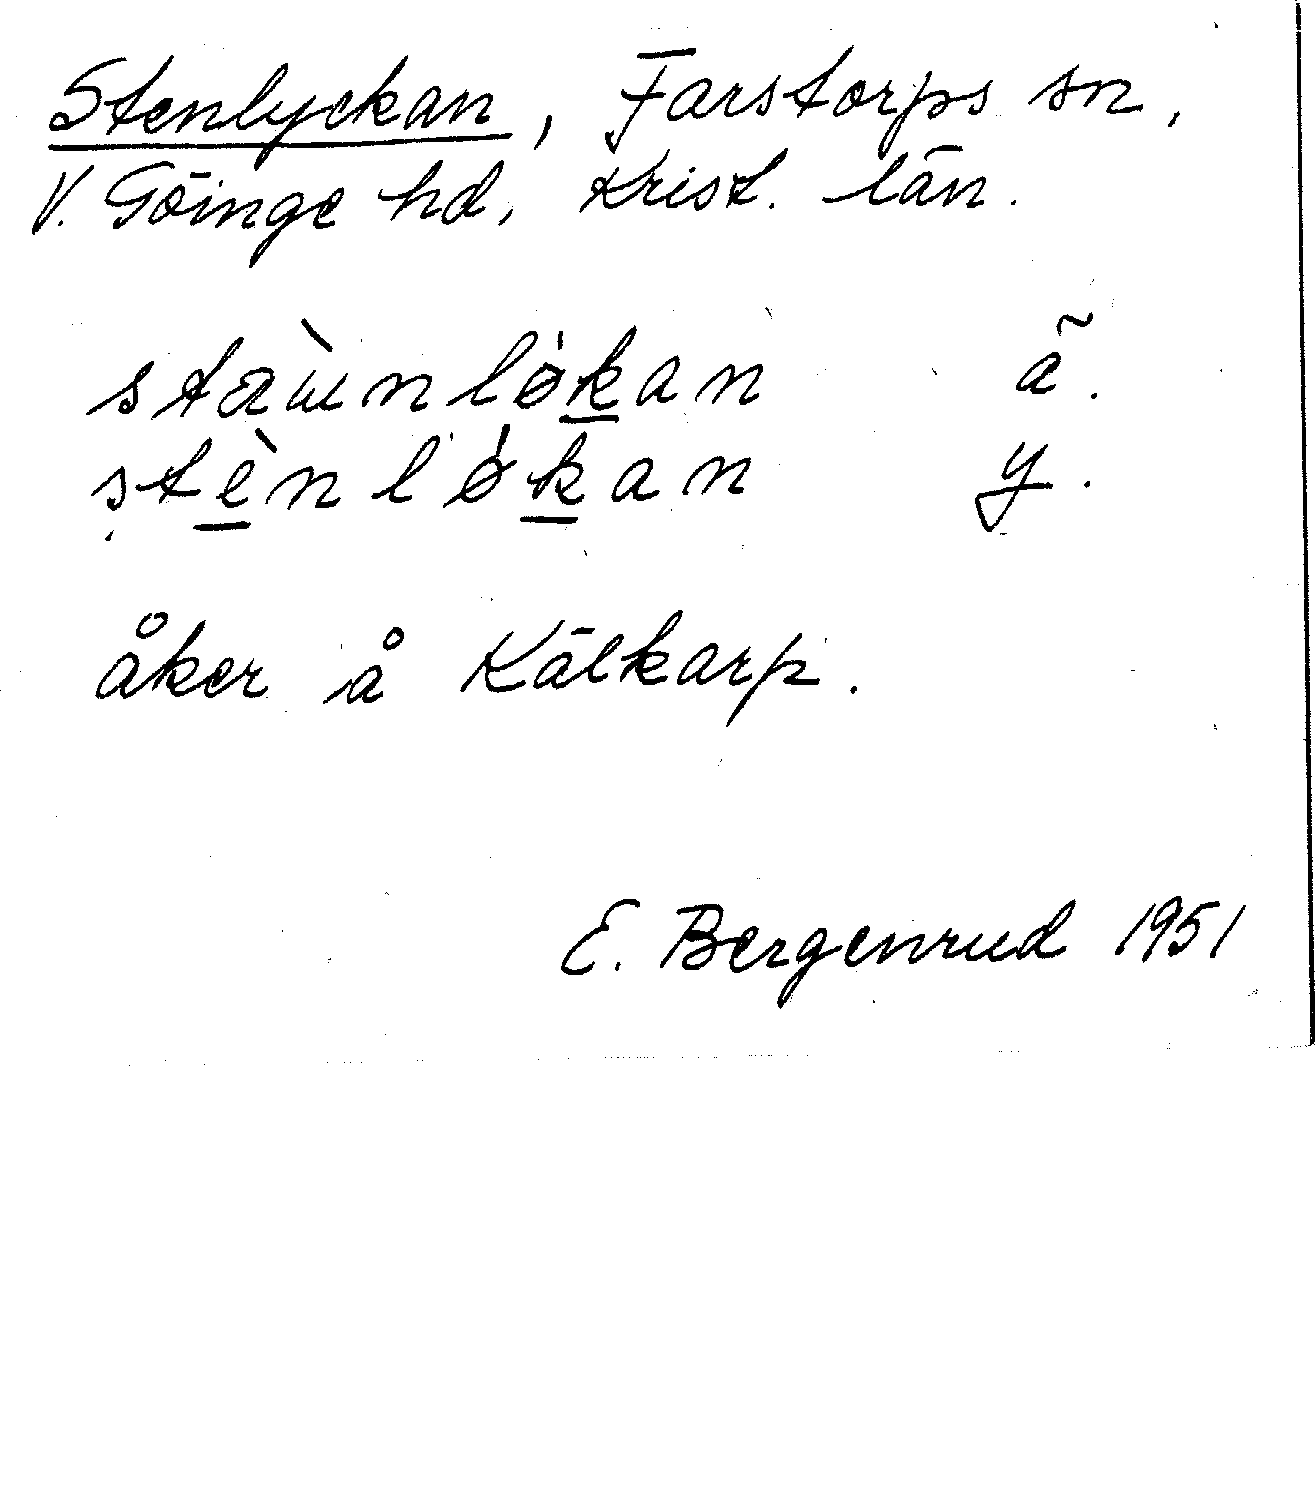 Stenlyckan, Farstorps sn,
V. Göinge hd, Krist. län.
staɯ̀nlø̍k̲an ã.
stè̲nlǿk̲an y.
åker å Kälkarp.
E. Bergenrud 1951